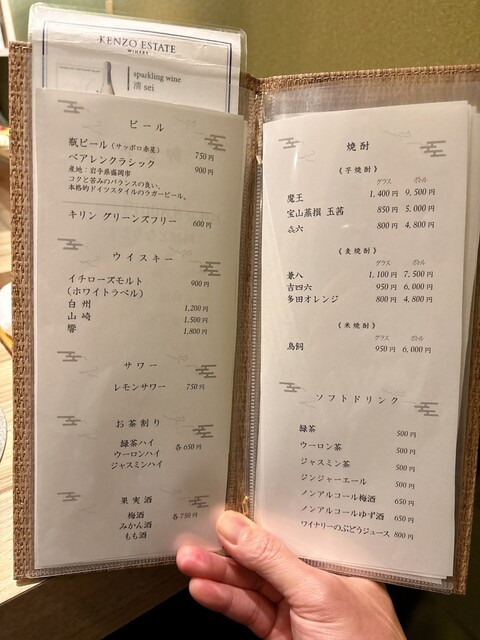 KENZO ESTATE
WINERY
sparkling wine
清 sei
ビール
瓶ビール（サッポロ赤星） 750円
ベアレンクラシック 900円
産地：岩手県盛岡市
コクと苦みのバランスの良い、
本格的ドイツスタイルのラガービール。
キリン グリーンズフリー 600円
ウイスキー
イチローズモルト 900円
（ホワイトラベル）
白州 1,200円
山崎 1,500円
響 1,800円
サワー
レモンサワー 750円
お茶割り
緑茶ハイ 各650円
ウーロンハイ
ジャスミンハイ
果実酒
梅酒 各750円
みかん酒
もも酒
焼酎
《芋焼酎》
グラス ボトル
魔王 1,400円 9,500円
宝山蒸撰 玉茜 850円 5,000円
㐂六 800円 4,800円
《麦焼酎》
グラス ボトル
兼八 1,100円 7,500円
吉四六 950円 6,000円
多田オレンジ 800円 4,800円
《米焼酎》
グラス ボトル
鳥飼 950円 6,000円
ソフトドリンク
緑茶 500円
ウーロン茶 500円
ジャスミン茶 500円
ジンジャーエール 500円
ノンアルコール梅酒 650円
ノンアルコールゆず酒 650円
ワイナリーのぶどうジュース 800円